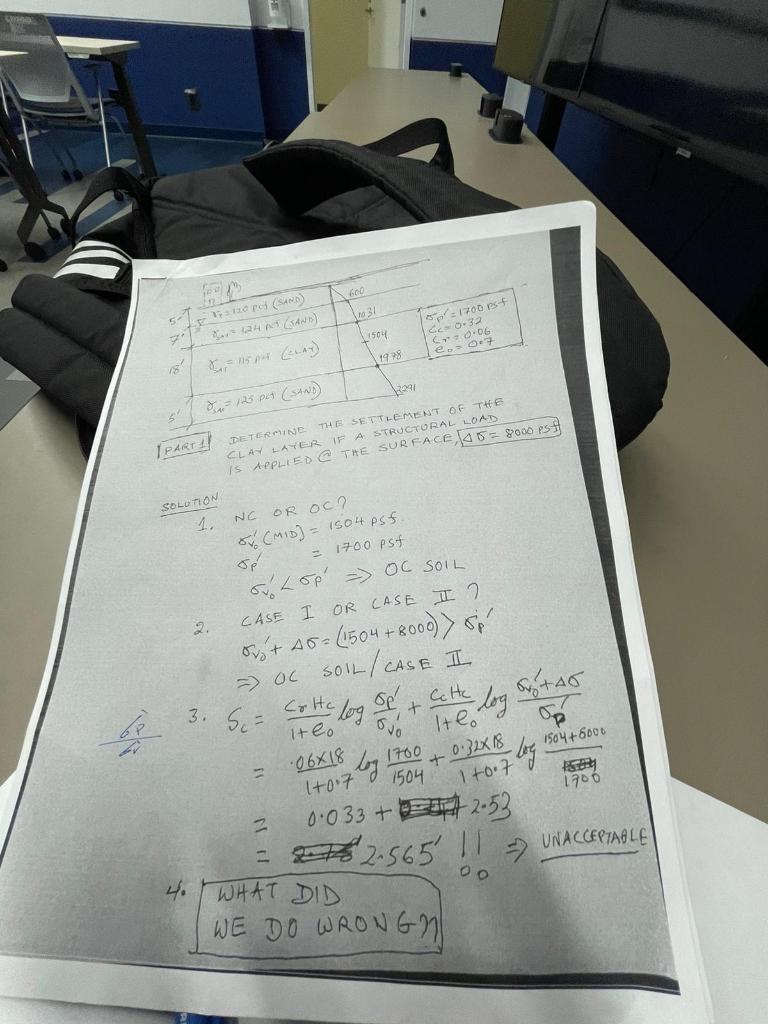 600
5' γT = 120 pcf (SAND)
1031
7' γSAT = 124 pcf (SAND)
σp' = 1700 psf
Cc = 0.32
Cr = 0.06
e₀ = 0.7
1504
18' γSAT = 115 pcf (CLAY)
1978
5' γSAT = 125 pcf (SAND)
2291
PART 1 DETERMINE THE SETTLEMENT OF THE
CLAY LAYER IF A STRUCTURAL LOAD
IS APPLIED @ THE SURFACE, Δσ = 8000 psf
SOLUTION
1. NC OR OC?
σv₀' (MID) = 1504 psf.
σp' = 1700 psf
σv₀' < σp' ⇒ OC SOIL
2. CASE I OR CASE II ?
σv₀' + Δσ = (1504+8000) > σp'
⇒ OC SOIL/CASE II
3. Sc = CrHc/1+e₀ log σp'/σv₀' + CcHc/1+e₀ log σv₀'+Δσ/σp'
= .06×18/1+0.7 log 1700/1504 + 0.32×18/1+0.7 log 1504+8000/1700
= 0.033 + 2.53
= 2.565' !! ⇒ UNACCEPTABLE
4. WHAT DID
WE DO WRONG??